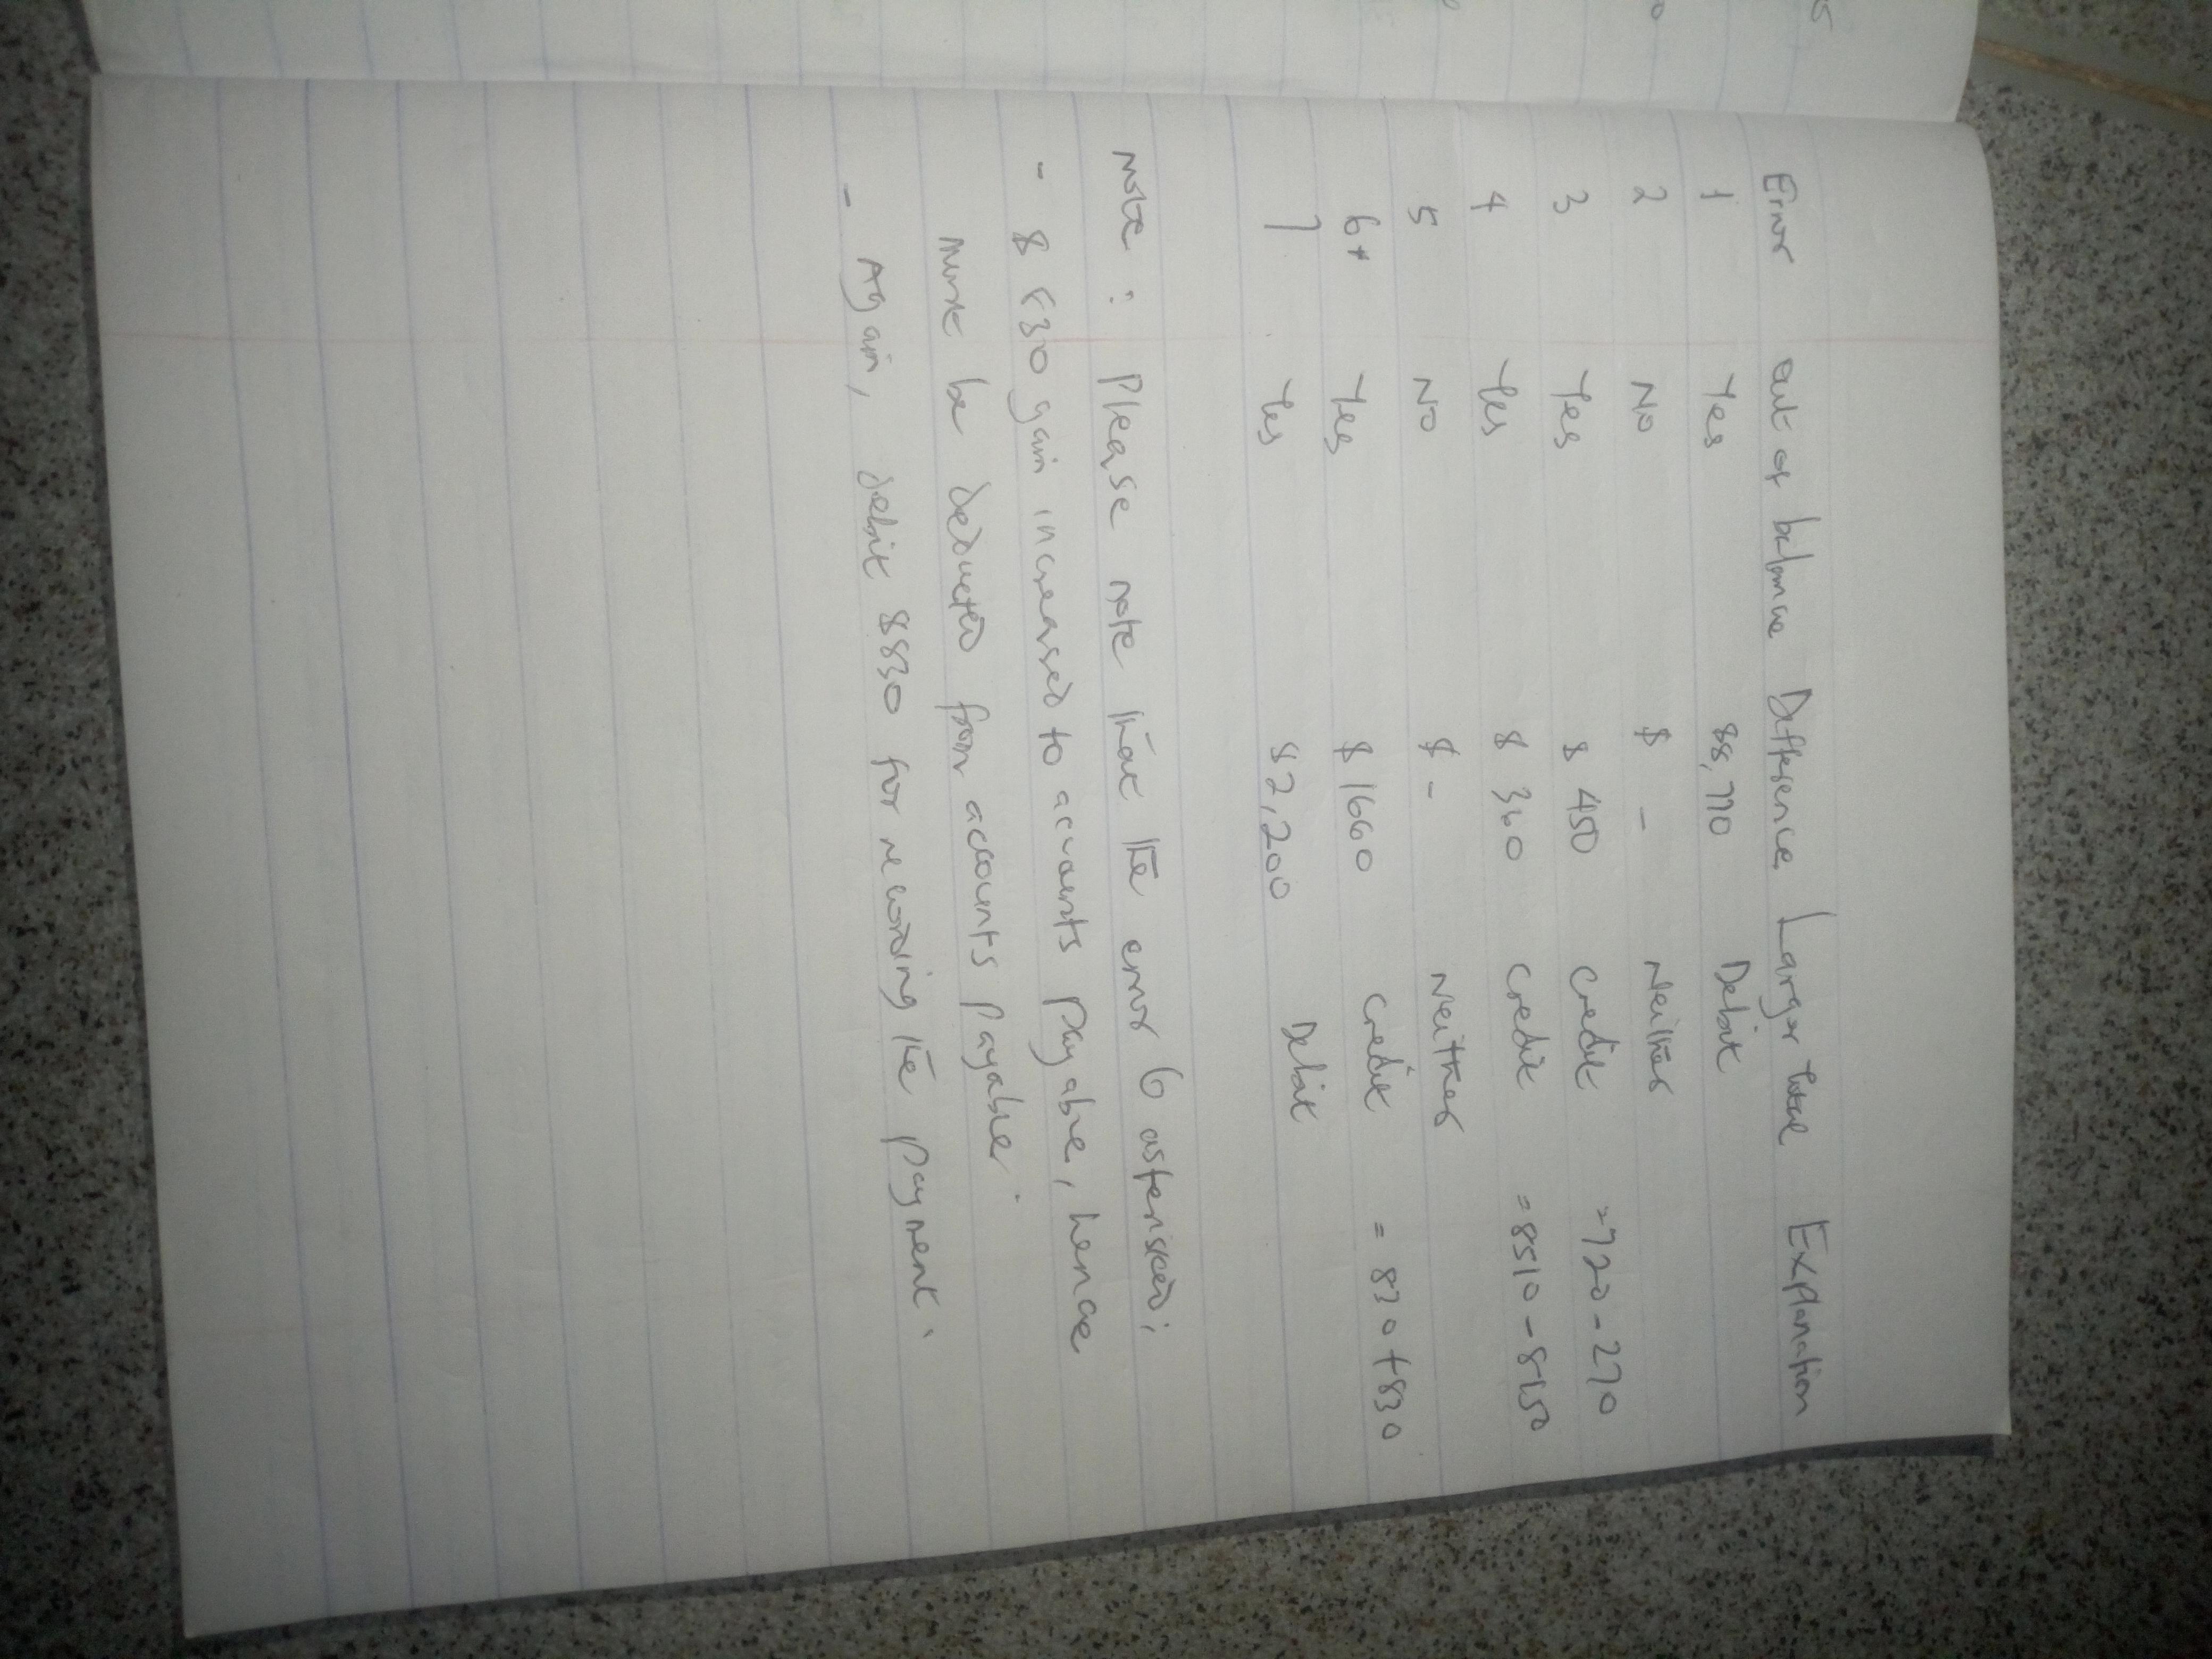 Error out of balance Difference Larger total Explanation
1 Yes $8,770 Debit
2 No $ - Neither
3 Yes $ 450 Credit =720-270
4 Yes $ 360 Credit =8510-8150
5 No $ - Neither
6* Yes $ 1660 Credit = 830+830
7 Yes $2,200 Debit
Note : Please note that the error 6 asterisked;
- $ 830 gain increased to accounts payable, hence
must be deducted from accounts payable.
- Again, debit $830 for recording the payment.